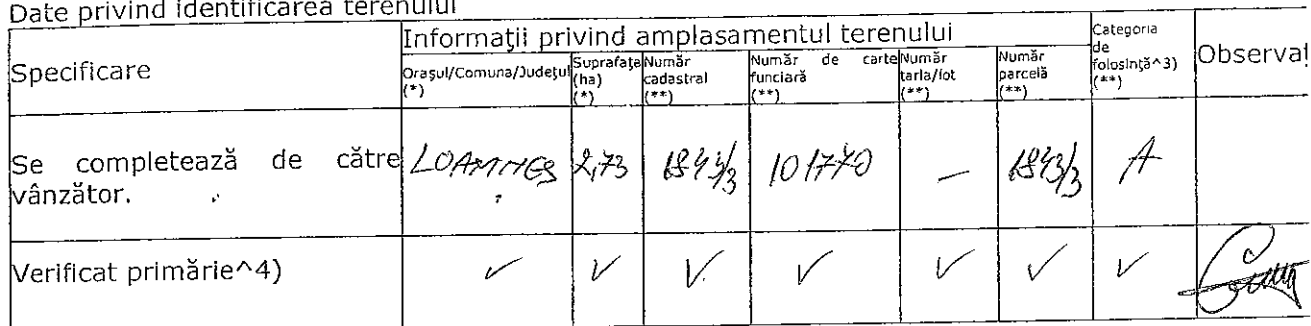 Date privind identificarea terenului
Specificare
Informaţii privind amplasamentul terenului
Categoria de folosinţă^3) (**)
Observaţ
Oraşul/Comuna/Judeţul (*)
Suprafaţe (ha) (*)
Număr cadastral (**)
Număr de carte funciară (**)
Număr tarla/lot (**)
Număr parcelă (**)
Se completează de către vânzător.
2,73
101770
—
1843/3
A
Verificat primărie^4)
✓ ✓ ✓ ✓ ✓ ✓ ✓